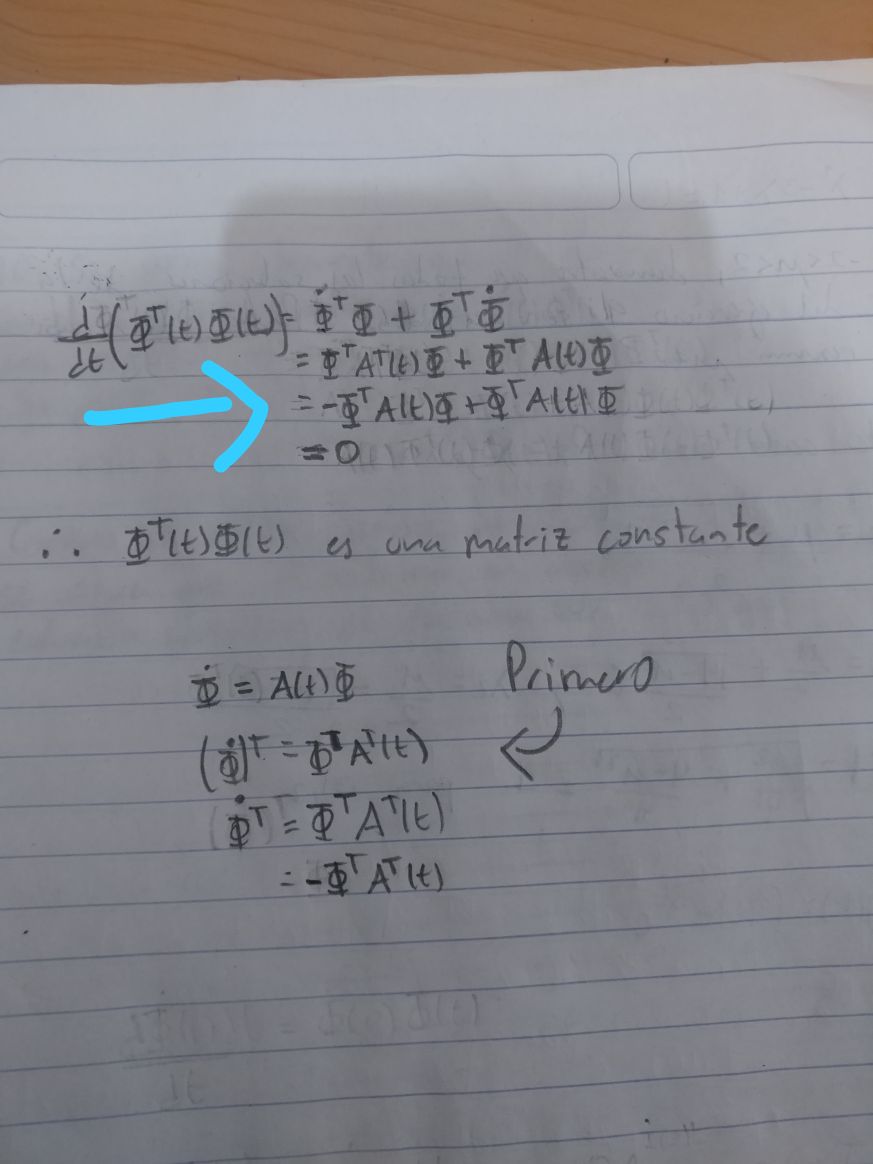 d/dt (Φᵀ(t) Φ(t)) = Φ̇ᵀ Φ + Φᵀ Φ̇
= Φᵀ Aᵀ(t) Φ + Φᵀ A(t) Φ
= -Φᵀ A(t) Φ + Φᵀ A(t) Φ
= 0
∴ Φᵀ(t) Φ(t) es una matriz constante
Φ̇ = A(t) Φ
Primero
(Φ̇)ᵀ = Φᵀ Aᵀ(t)
Φ̇ᵀ = Φᵀ Aᵀ(t)
= -Φᵀ Aᵀ(t)